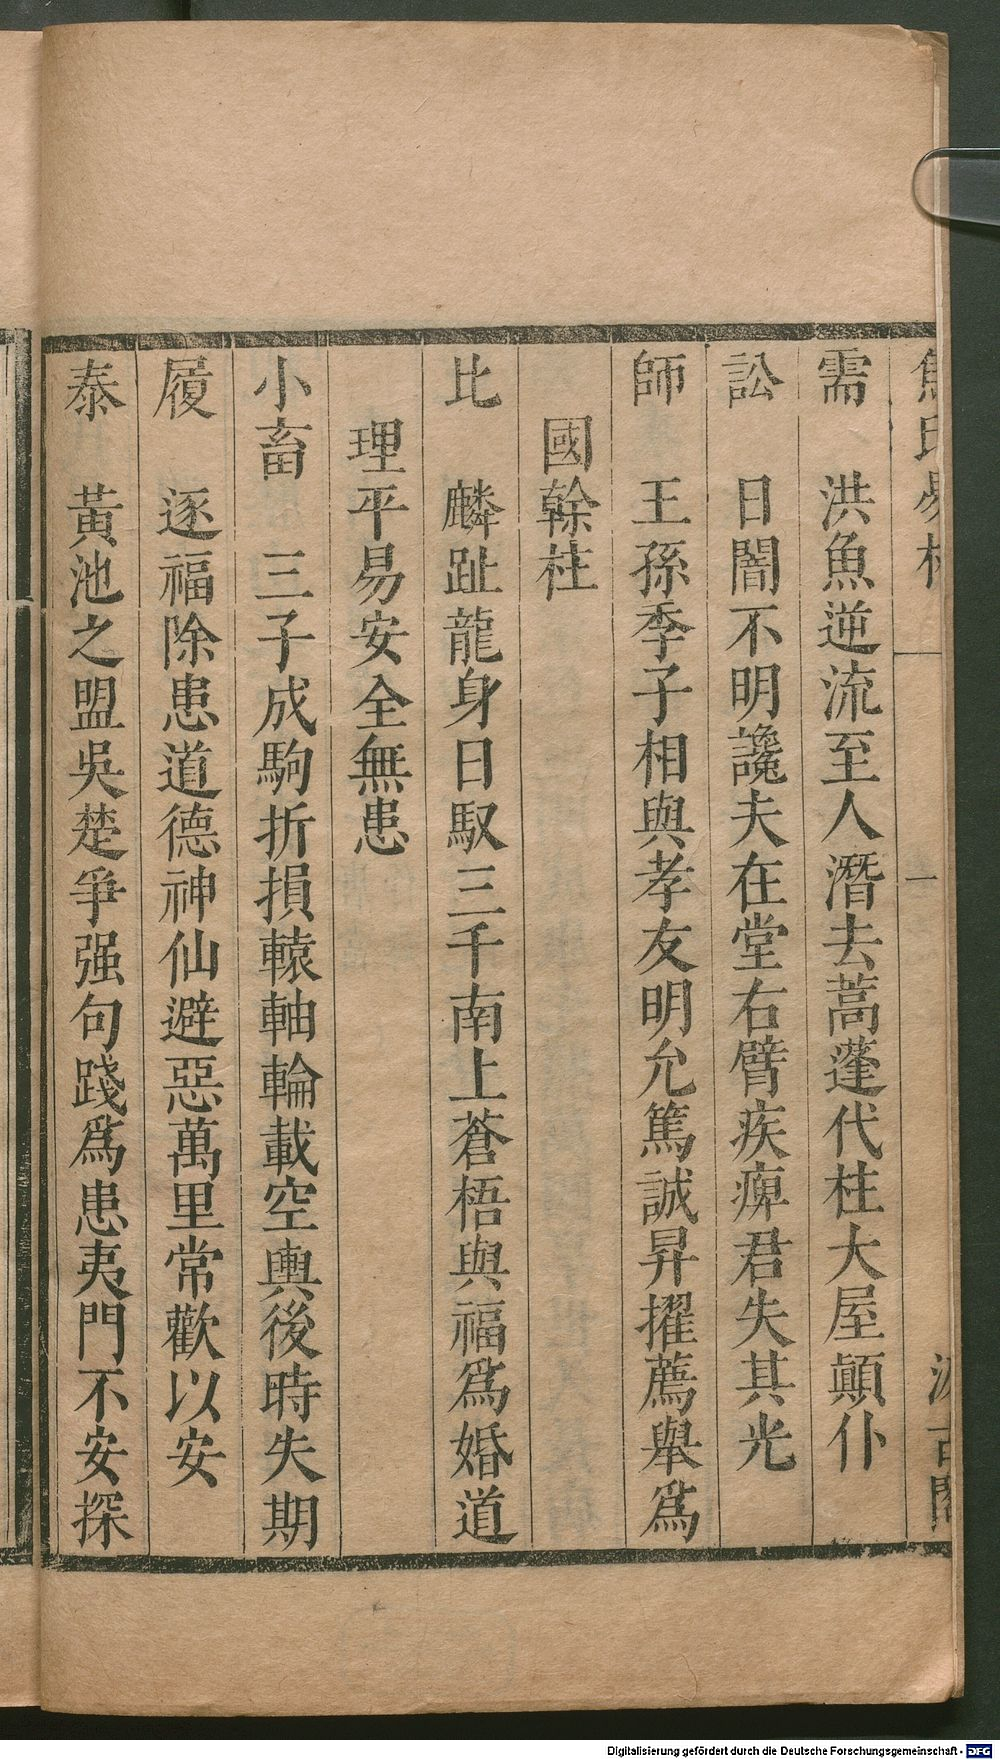 焦氏易林
需 洪魚逆流至人潛去蒿蓬代柱大屋顛仆
訟 日闇不明讒夫在堂右臂疾痺君失其光
師 王孫季子相與孝友明允篤誠昇擢薦舉爲
國榦柱
比 麟趾龍身日馭三千南上蒼梧與福爲婚道
理平易安全無患
小畜 三子成駒折損轅軸輪載空輿後時失期
履 逐福除患道德神仙避惡萬里常歡以安
泰 黃池之盟吳楚爭强句踐爲患夷門不安探
Digitalisierung gefördert durch die Deutsche Forschungsgemeinschaft - DFG